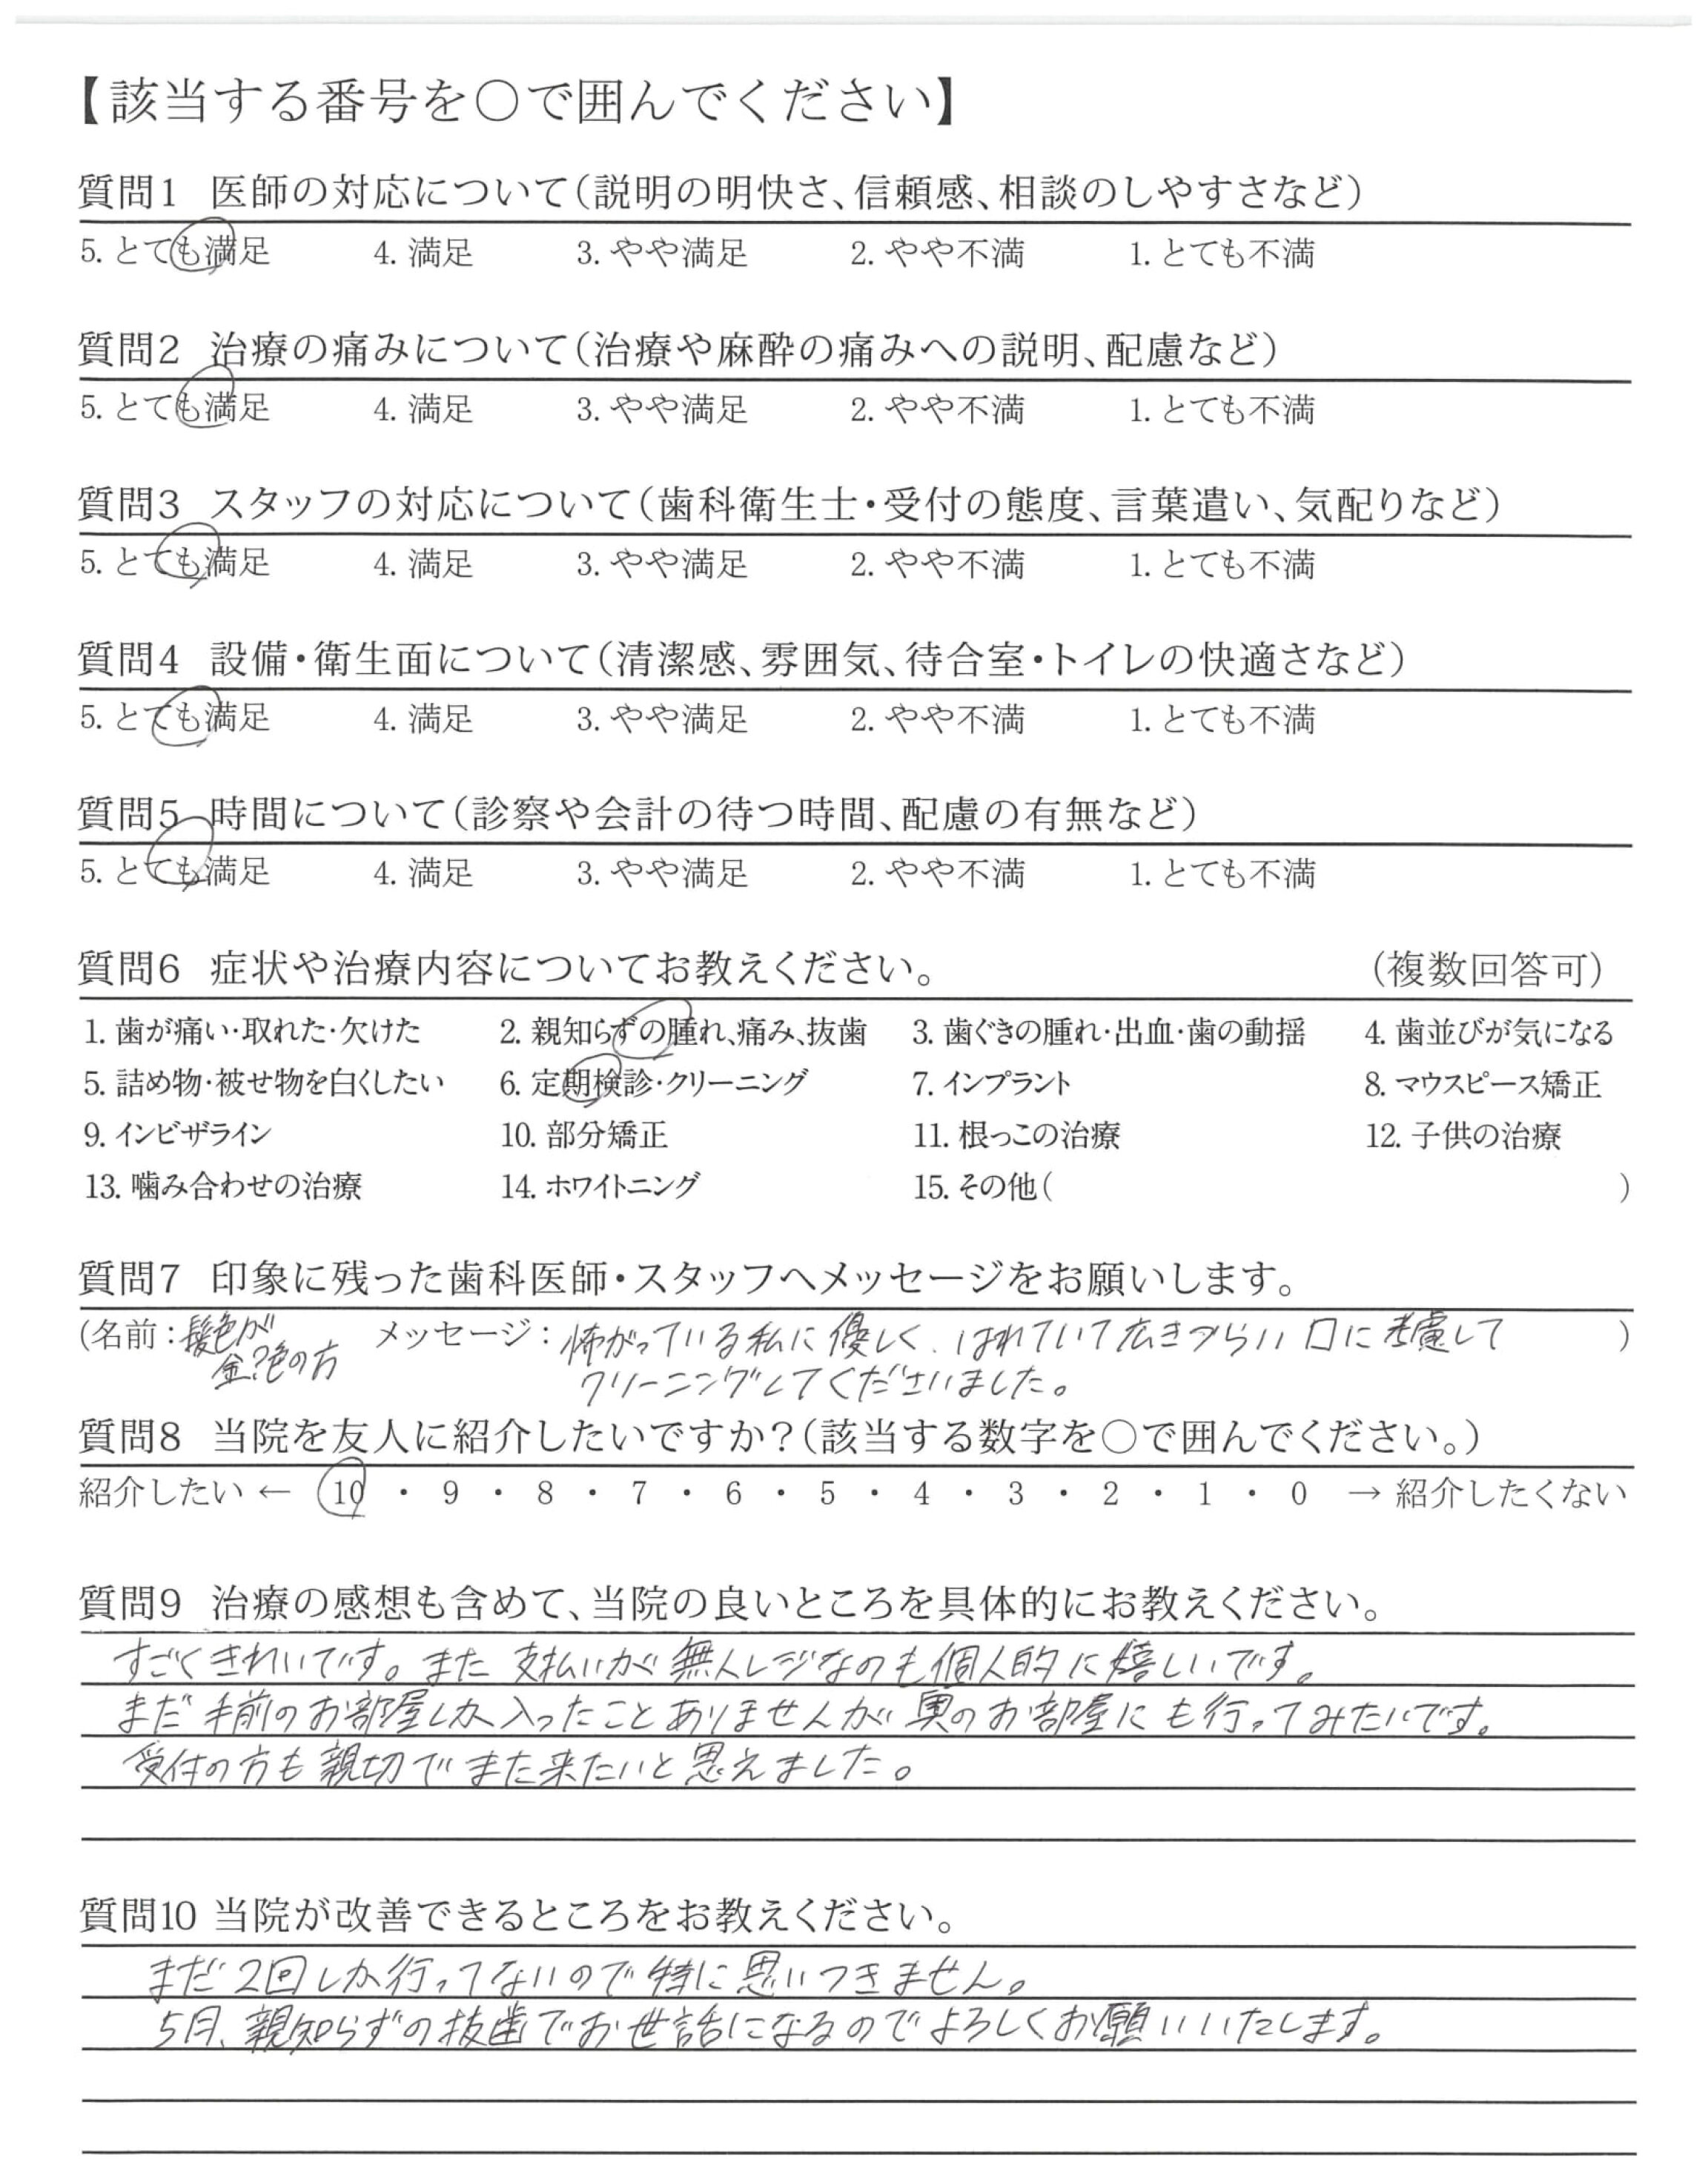 【該当する番号を○で囲んでください】
質問1 医師の対応について(説明の明快さ、信頼感、相談のしやすさなど)
5. とても満足 4. 満足 3. やや満足 2. やや不満 1. とても不満
質問2 治療の痛みについて(治療や麻酔の痛みへの説明、配慮など)
5. とても満足 4. 満足 3. やや満足 2. やや不満 1. とても不満
質問3 スタッフの対応について(歯科衛生士・受付の態度、言葉遣い、気配りなど)
5. とても満足 4. 満足 3. やや満足 2. やや不満 1. とても不満
質問4 設備・衛生面について(清潔感、雰囲気、待合室・トイレの快適さなど)
5. とても満足 4. 満足 3. やや満足 2. やや不満 1. とても不満
質問5 時間について(診察や会計の待つ時間、配慮の有無など)
5. とても満足 4. 満足 3. やや満足 2. やや不満 1. とても不満
質問6 症状や治療内容についてお教えください。 (複数回答可)
1. 歯が痛い・取れた・欠けた 2. 親知らずの腫れ、痛み、抜歯 3. 歯ぐきの腫れ・出血・歯の動揺 4. 歯並びが気になる
5. 詰め物・被せ物を白くしたい 6. 定期検診・クリーニング 7. インプラント 8. マウスピース矯正
9. インビザライン 10. 部分矯正 11. 根っこの治療 12. 子供の治療
13. 噛み合わせの治療 14. ホワイトニング 15. その他( )
質問7 印象に残った歯科医師・スタッフへメッセージをお願いします。
(名前:髪色が メッセージ:怖がっている私に優しく、はれていて広きづらい口に考慮して )
金?色の方 クリーニングしてくださいました。
質問8 当院を友人に紹介したいですか?(該当する数字を○で囲んでください。)
紹介したい ← 10 ・ 9 ・ 8 ・ 7 ・ 6 ・ 5 ・ 4 ・ 3 ・ 2 ・ 1 ・ 0 → 紹介したくない
質問9 治療の感想も含めて、当院の良いところを具体的にお教えください。
すごくきれいです。また支払いが無人レジなのも個人的に嬉しいです。
まだ手前のお部屋しか入ったことありませんが奥のお部屋にも行ってみたいです。
受付の方も親切でまた来たいと思えました。
質問10 当院が改善できるところをお教えください。
まだ2回しか行ってないので特に思いつきません。
5月、親知らずの抜歯でお世話になるのでよろしくお願いいたします。